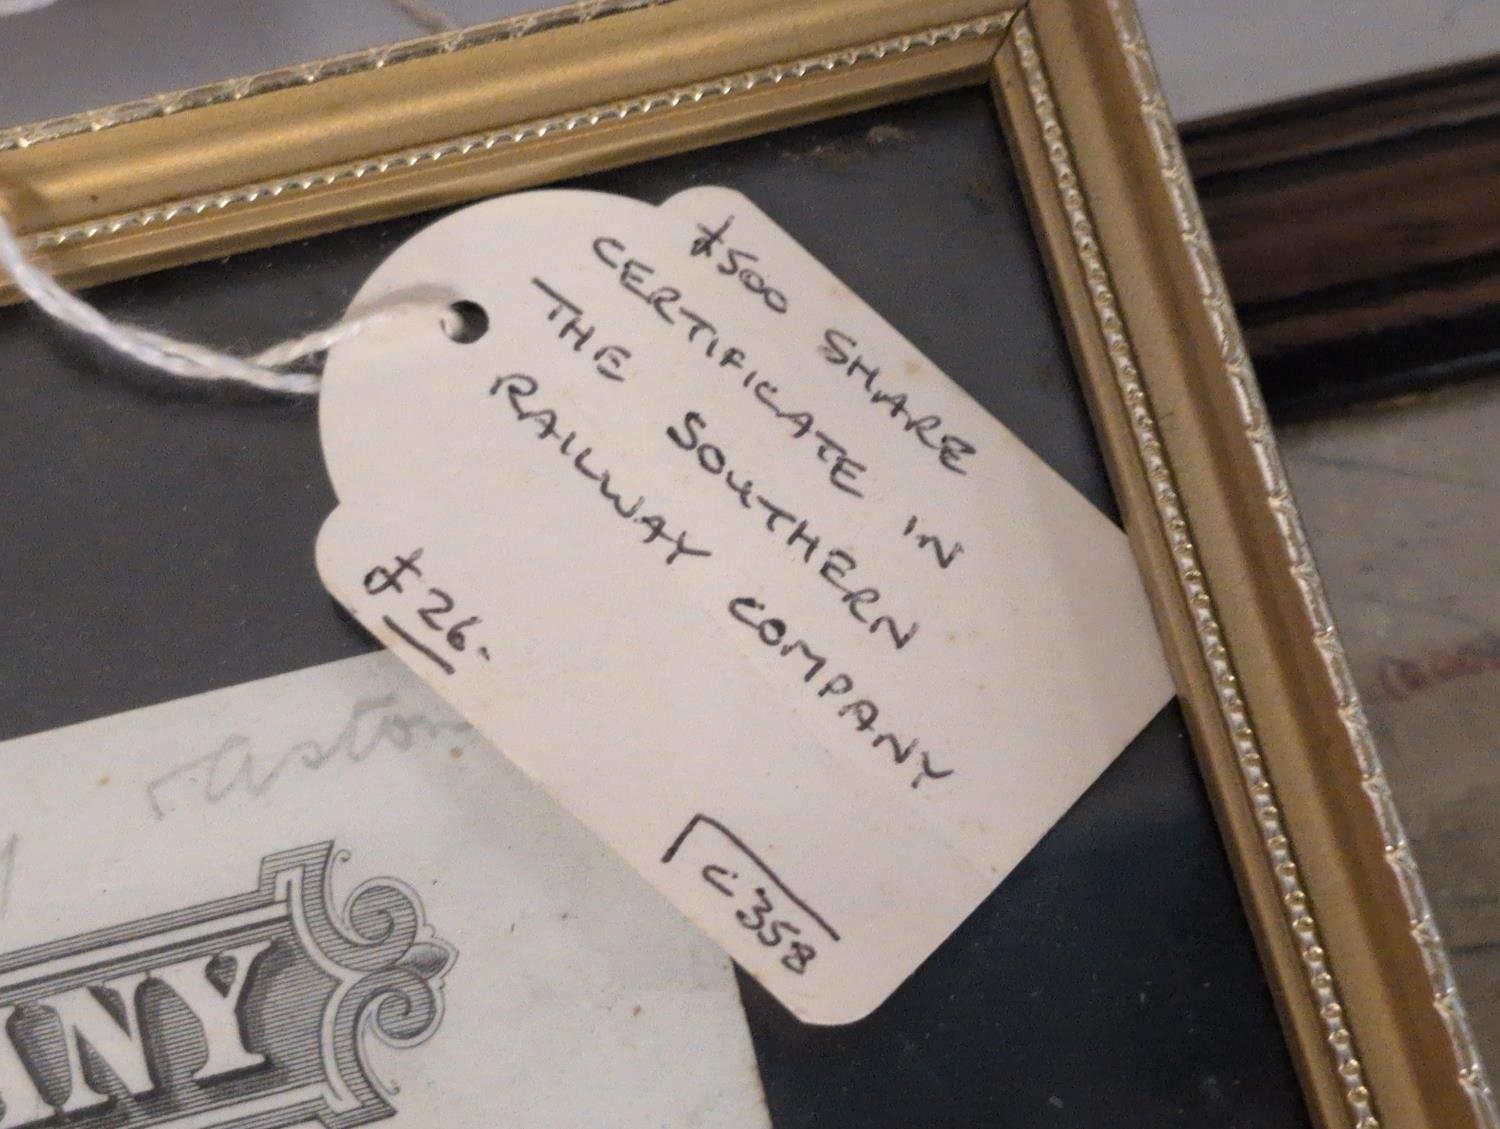 £500 SHARE
CERTIFICATE IN
THE SOUTHERN
RAILWAY COMPANY
£26.
C358
Aston
NY